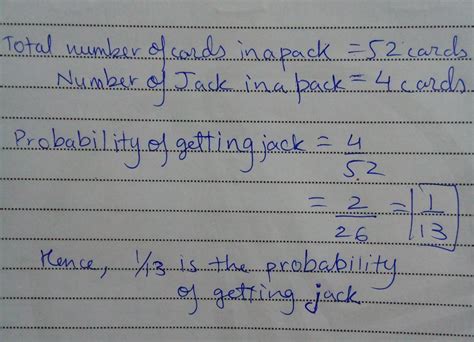 Total number of cards in a pack = 52 cards
Number of Jack in a pack = 4 cards
Probability of getting jack = 4/52
= 2/26 = 1/13
Hence, 1/13 is the probability
of getting jack